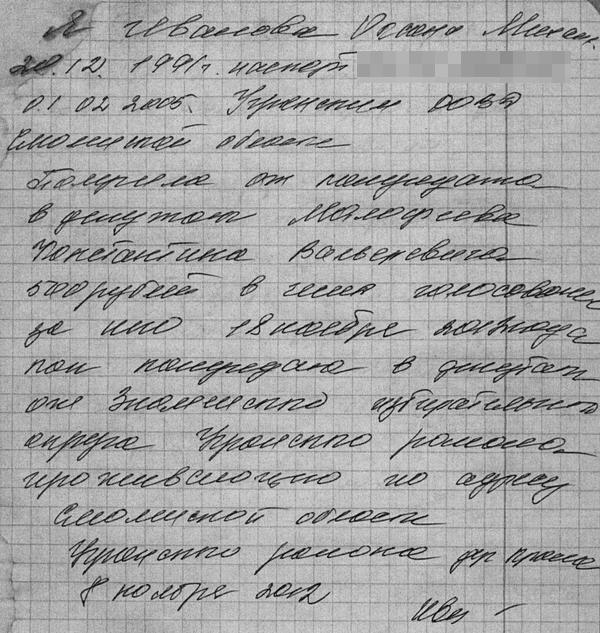 Я Иванова Оксана Михай.
20.12.1991г. паспорт
01 02 2005. Угранским ООВД
Смоленской области
Получила от кандидата
в депутаты Малофеева
Константина Валерьевича
500 рублей в голосования
за него 18 ноября 2012года
как кандидата в депутаты
от Знаменского избирательного
округа Угранского района
проживающего по адресу
Смоленской области
Угранского района дер
8 ноября 2012
Ива